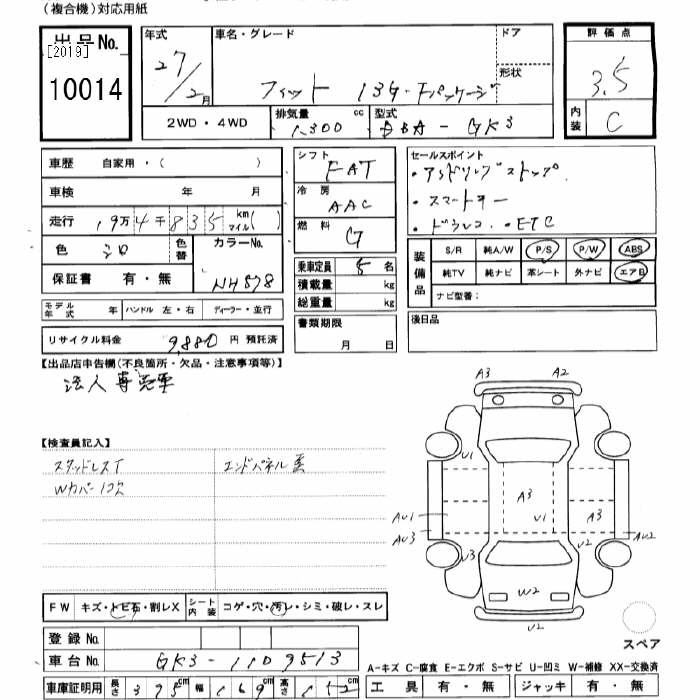 (複合機)対応用紙
出品No.
[2019]
10014
年式 27/2月
車名・グレード フィット 13G・Fパッケージ
ドア
形状
評価点 3.5
内装 C
2WD・4WD
排気量 1,300 cc
型式 DBA-GK3
車歴 自家用・( )
車検 年 月
走行 19万4千835 km マイル( )
色 シロ
色替
カラーNo. NH578
保証書 有・無
モデル年式 年
ハンドル 左・右
ディーラー・並行
リサイクル料金 9,880 円 預託済
シフト FAT
冷房 AAC
燃料 G
乗車定員 5 名
積載量 kg
総重量 kg
書類期限
月 日
セールスポイント
・アイドリングストップ
・スマートキー
・ドラレコ ・ETC
装備品
S/R 純A/W P/S P/W ABS
純TV 純ナビ 革シート 外ナビ エアB
ナビ型番:
後日品
【出品店申告欄(不良箇所・欠品・注意事項等)】
法人専売車
【検査員記入】
スタッドレスT
エンドパネル歪
Wカバー1コ欠
A3 A2
U1
A3
AU1
U1
A3
AU3
U3
U2
AU2
W2
U2
スペア
FW キズ・トビ石・割レX
シート内装 コゲ・穴・汚レ・シミ・破レ・スレ
登録No.
車台No. GK3-1109513
A-キズ C-腐食 E-エクボ S-サビ U-凹ミ W-補修 XX-交換済
車庫証明用 長さ 395 cm 幅 169 cm 高さ 152
工具 有・無 ジャッキ 有・無